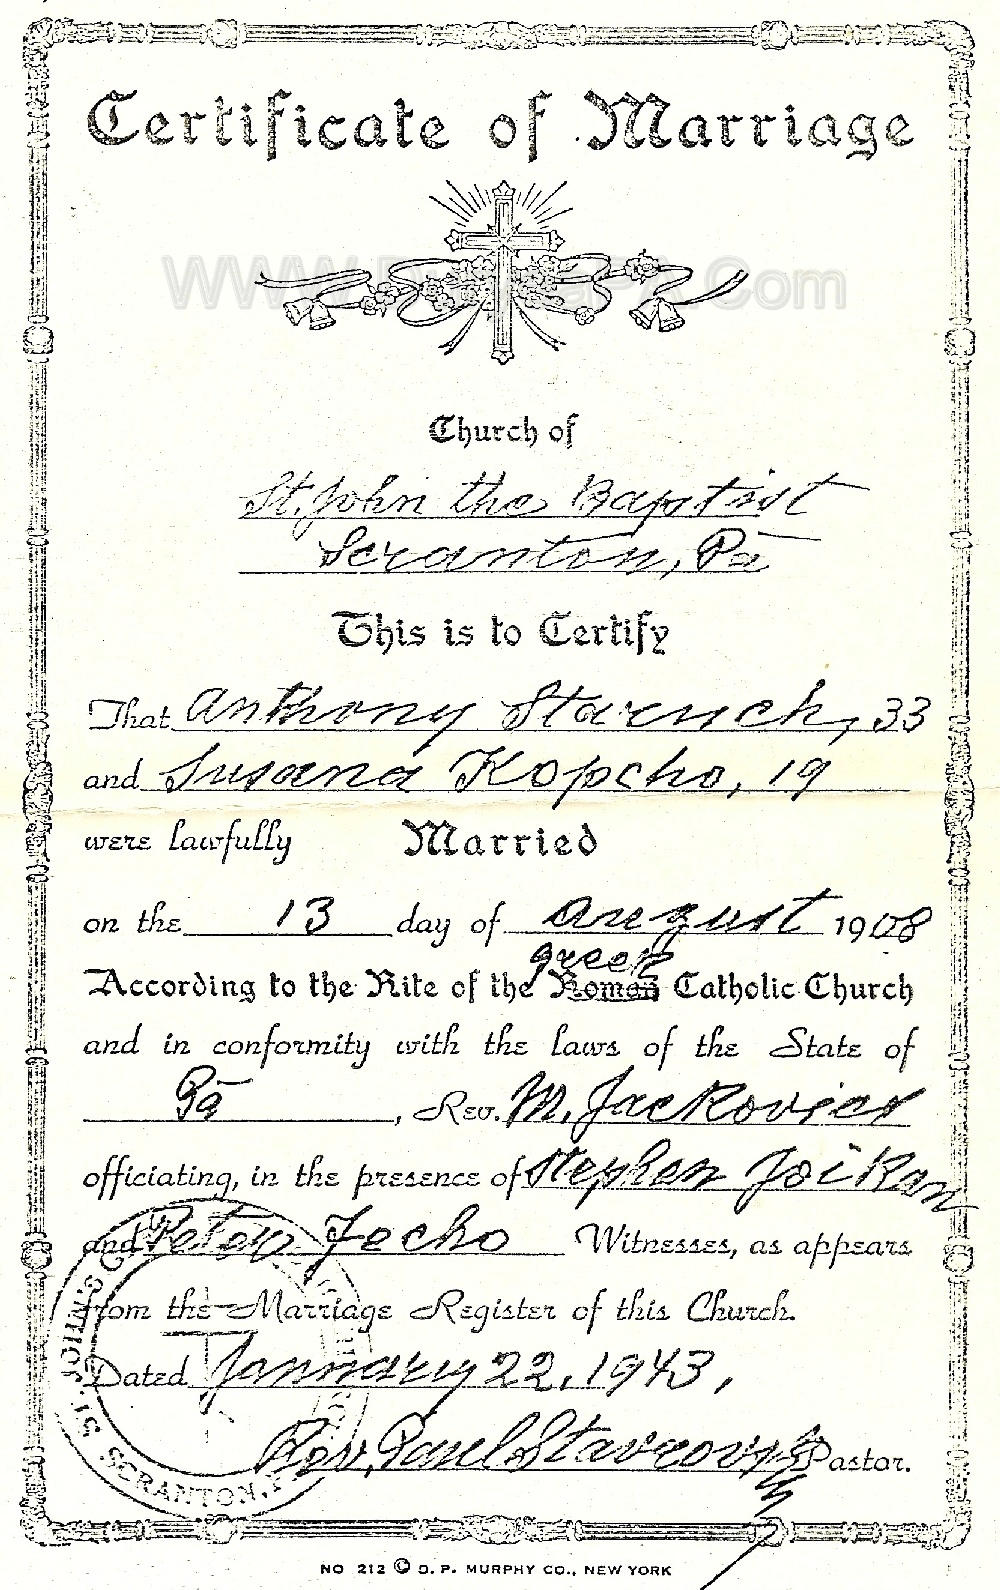 Certificate of Marriage
Church of
St. John the Baptist
Scranton, Pa
This is to Certify
That Anthony Staruch, 33
and Susana Kopcho, 19
were lawfully Married
on the 13 day of August 1908
greek
According to the Rite of the Roman Catholic Church
and in conformity with the laws of the State of
Pa, Rev. M. Jackovics
officiating, in the presence of Stephen Joikan
and Peter Fecho Witnesses, as appears
from the Marriage Register of this Church.
Dated January 22, 1943,
Rev. Paul Pastor.
ST. JOHN'S
SCRANTON,
NO 212 © D. P. MURPHY CO., NEW YORK